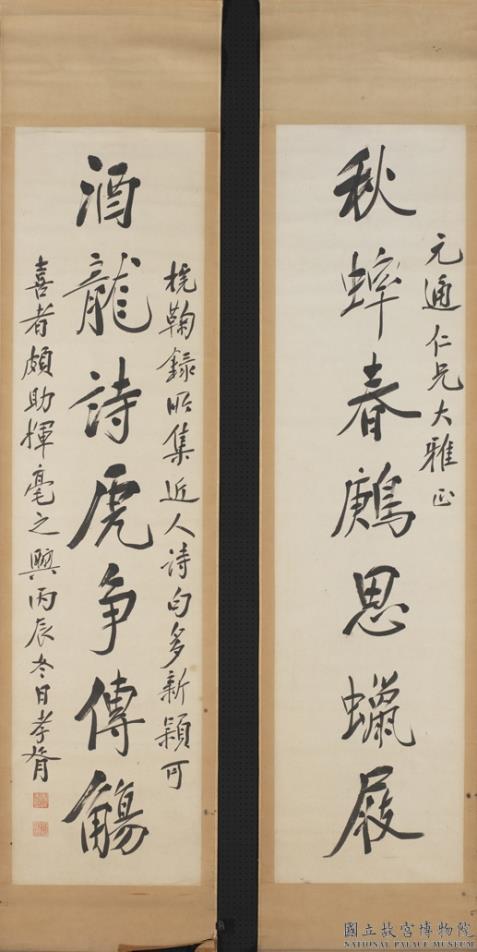 元通仁兄大雅正
秋蟀春鶊思蠟屐
梡鞠録所集近人詩句多新穎可
酒龍詩虎争傳觴
喜者頗助揮毫之興丙辰冬日孝胥
國立故宮博物院
NATIONAL PALACE MUSEUM